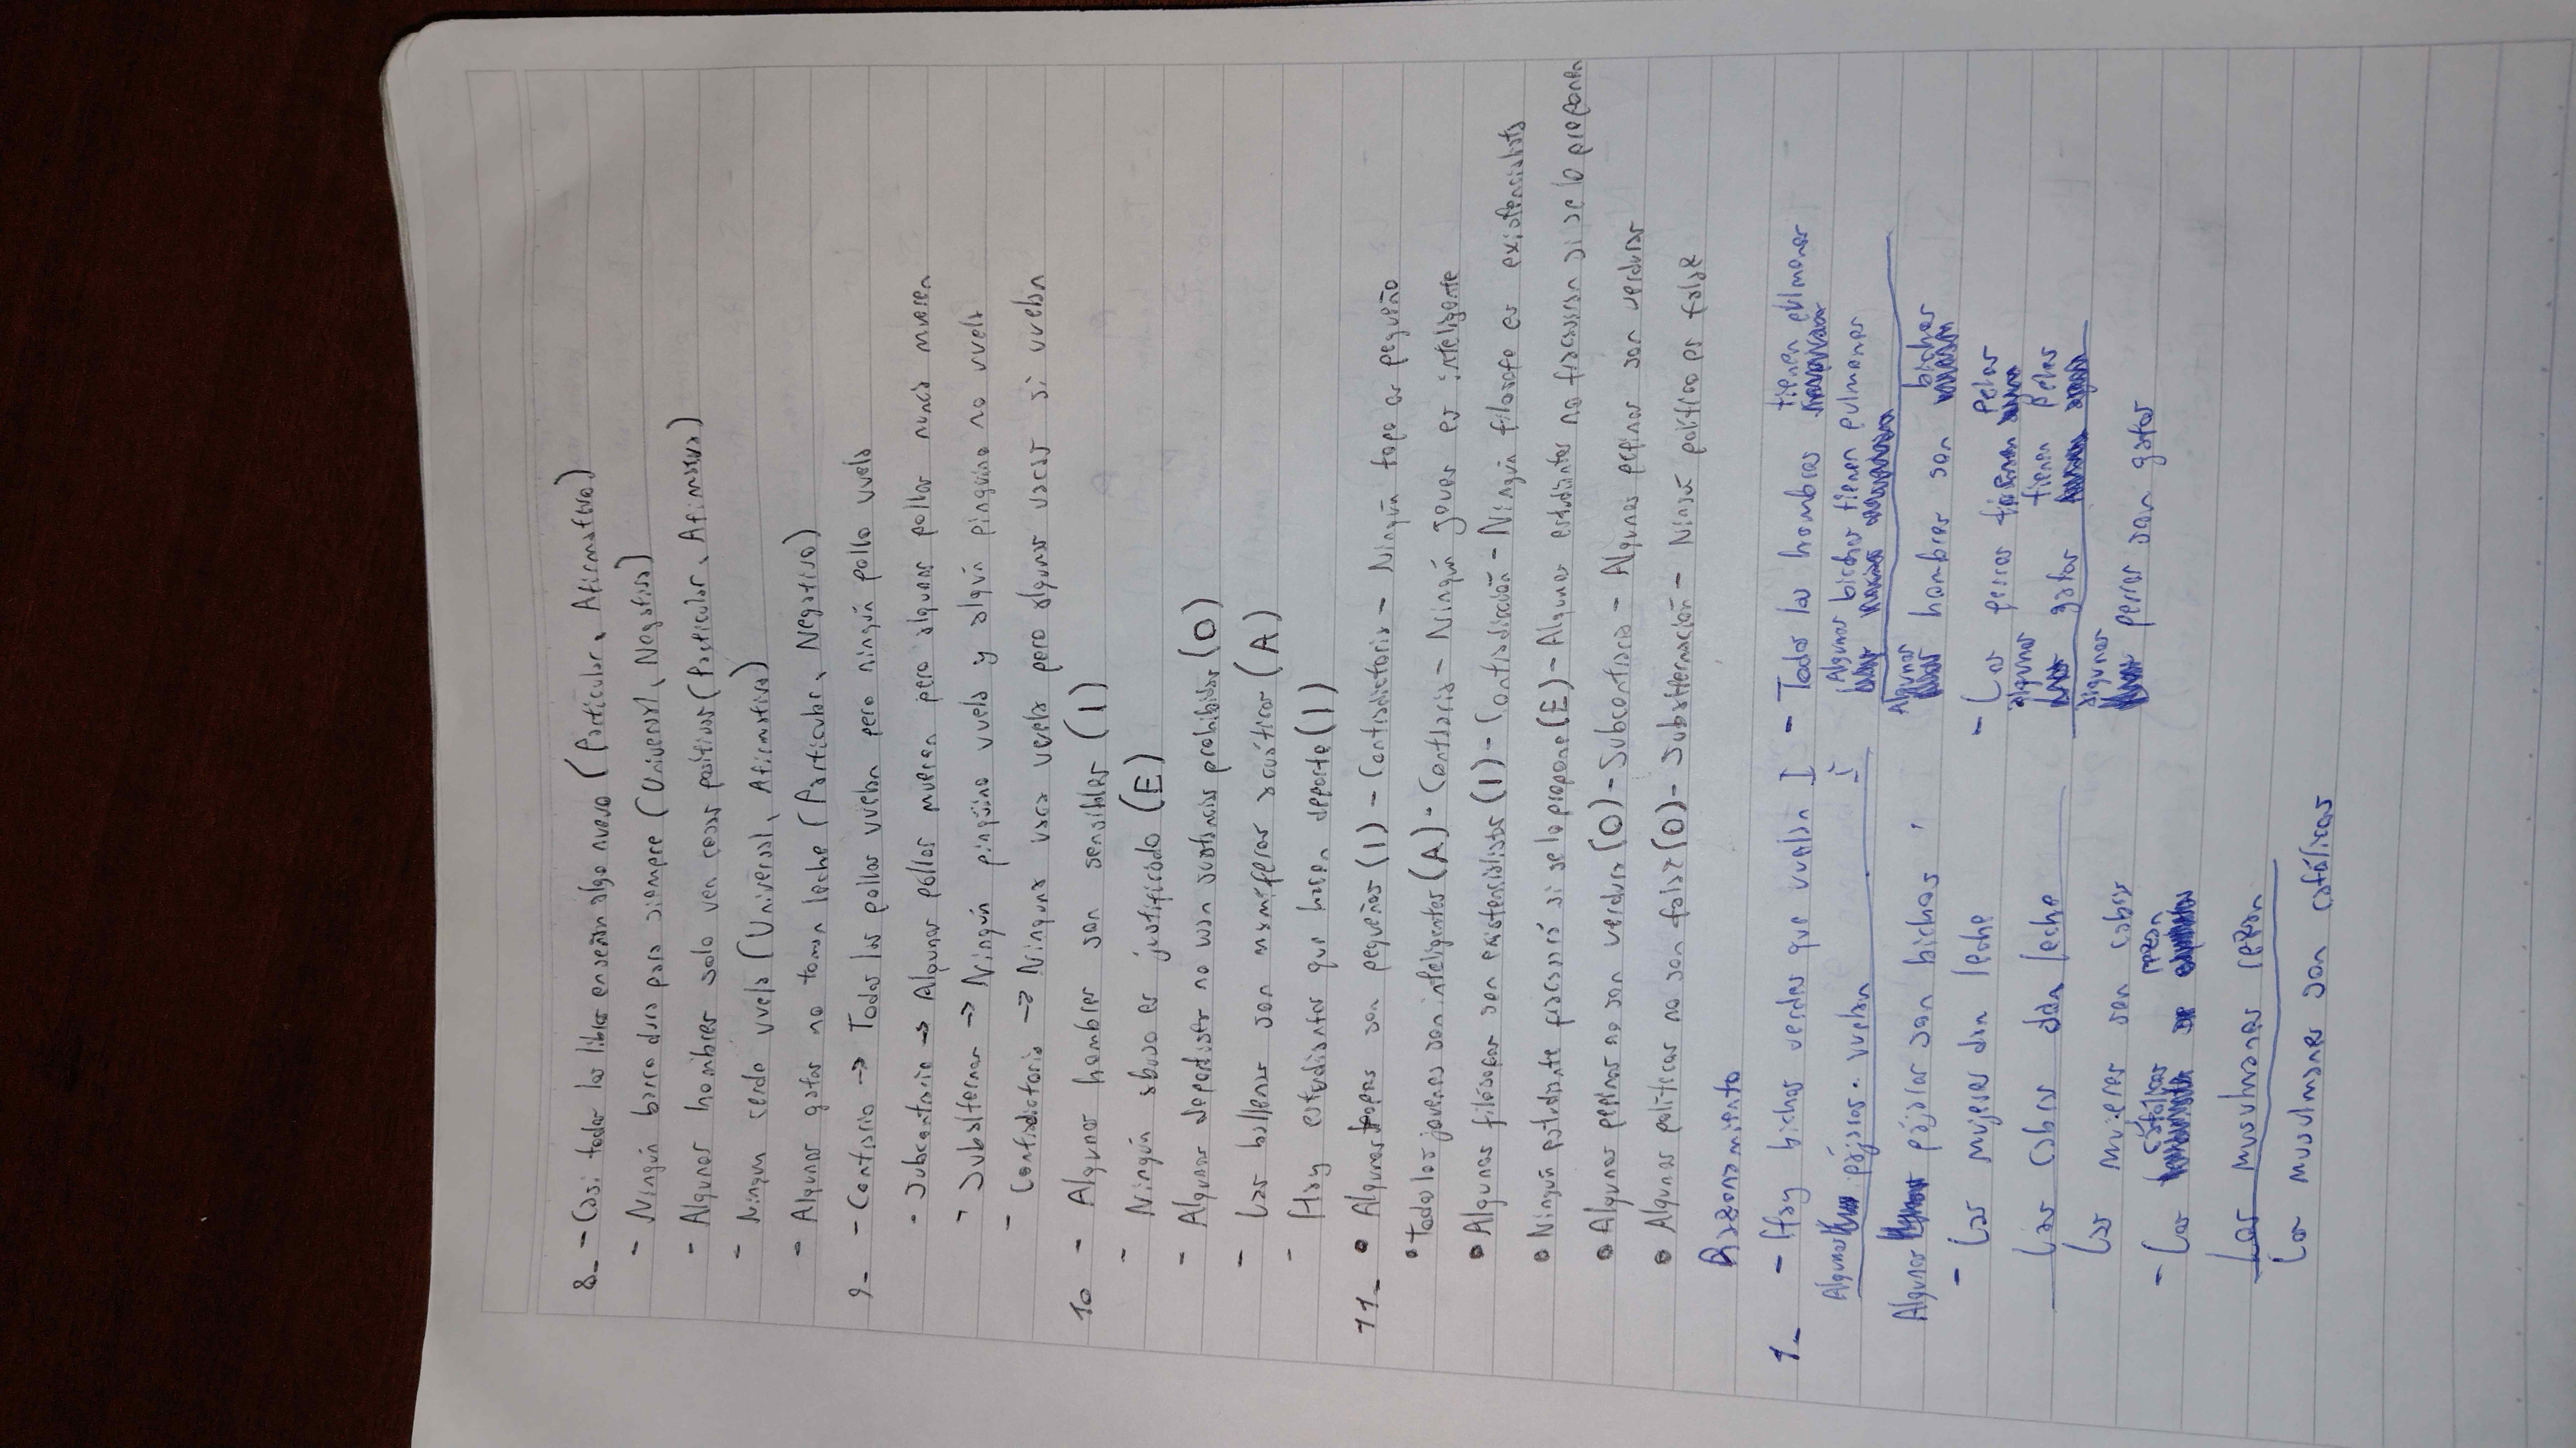 8_ - Casi todos los libros enseñan algo nuevo (Particular, Afirmativo)
- Ningún barco dura para siempre (Universal, Negativo)
- Algunos hombres solo ven cosas positivas (Particular, Afirmativo)
- Ningun cerdo vuela (Universal, Afirmativo)
- Algunos gatos no toman leche (Particular, Negativo)
9_ - Contrario -> Todos los pollos vuelan pero ningún pollo vuela
- Subcontrario -> Algunos pollos mueren pero algunos pollos nunca mueren
- Subalternos -> Ningún pingüino vuela y algún pinguino no vuela
- Contradictorio -> Ninguna vaca vuela pero algunas vacas si vuelan
10 - Algunos hombres son sensibles (I)
- Ningún abuso es justificado (E)
- Algunos deportistas no usan sustancias prohibidas (O)
- Las ballenas son mamiferos acuáticos (A)
- Hay estudiantes que hacen deporte (I)
11_ • Algunos topos son pequeños (I) - Contradictorio - Ningún topo es pequeño
• Todos los jovenes son inteligentes (A) - Contrario - Ningún joven es inteligente
• Algunos filosofos son existencialistas (I) - Contradicción - Ningún filosofo es existencialista
• Ningún estudiante fracasará si se lo propone (E) - Algunos estudiantes no fracasan si se lo proponen
• Algunos pepinos no son verdura (O) - Subcontrario - Algunos pepinos son verduras
• Algunos politicos no son falsos (O) - Subalternación - Ningún político es falso
Razonamiento
1_ - Hay bichos verdes que vuelan I
Algunos pájaros vuelan I
Algunos pájaros son bichos
- Las mujeres dan leche
Las cabras dan leche
Las mujeres son cabras
- Los católicos rezan
Los musulmanes rezan
Los musulmanes son católicos
- Todos los hombres tienen pulmones
Algunos bichos tienen pulmones
Algunos hombres son bichos
- Los perros tienen pelos
algunos gatos tienen pelos
algunos perros son gatos